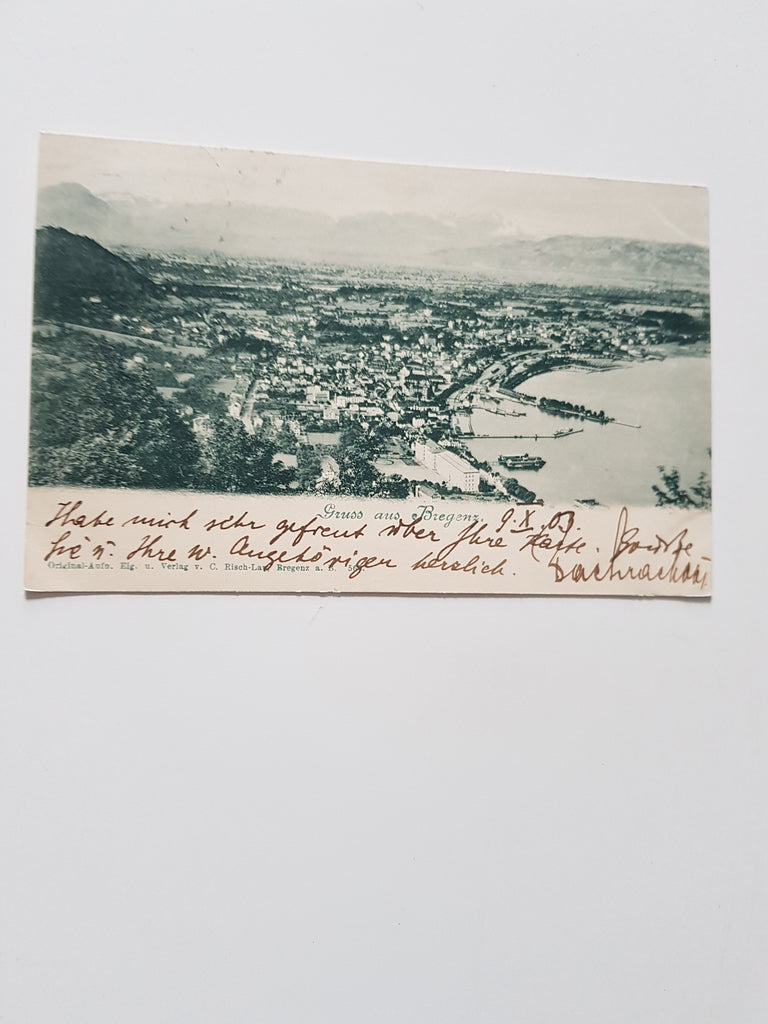 Gruss aus Bregenz.
9.X.03.
Habe mich sehr gefreut über Ihre Karte. Grüsse
Sie u. Ihre w. Angehörigen herzlich.
Original-Aufn. Eig. u. Verlag v. C. Risch-Lau, Bregenz a. B.